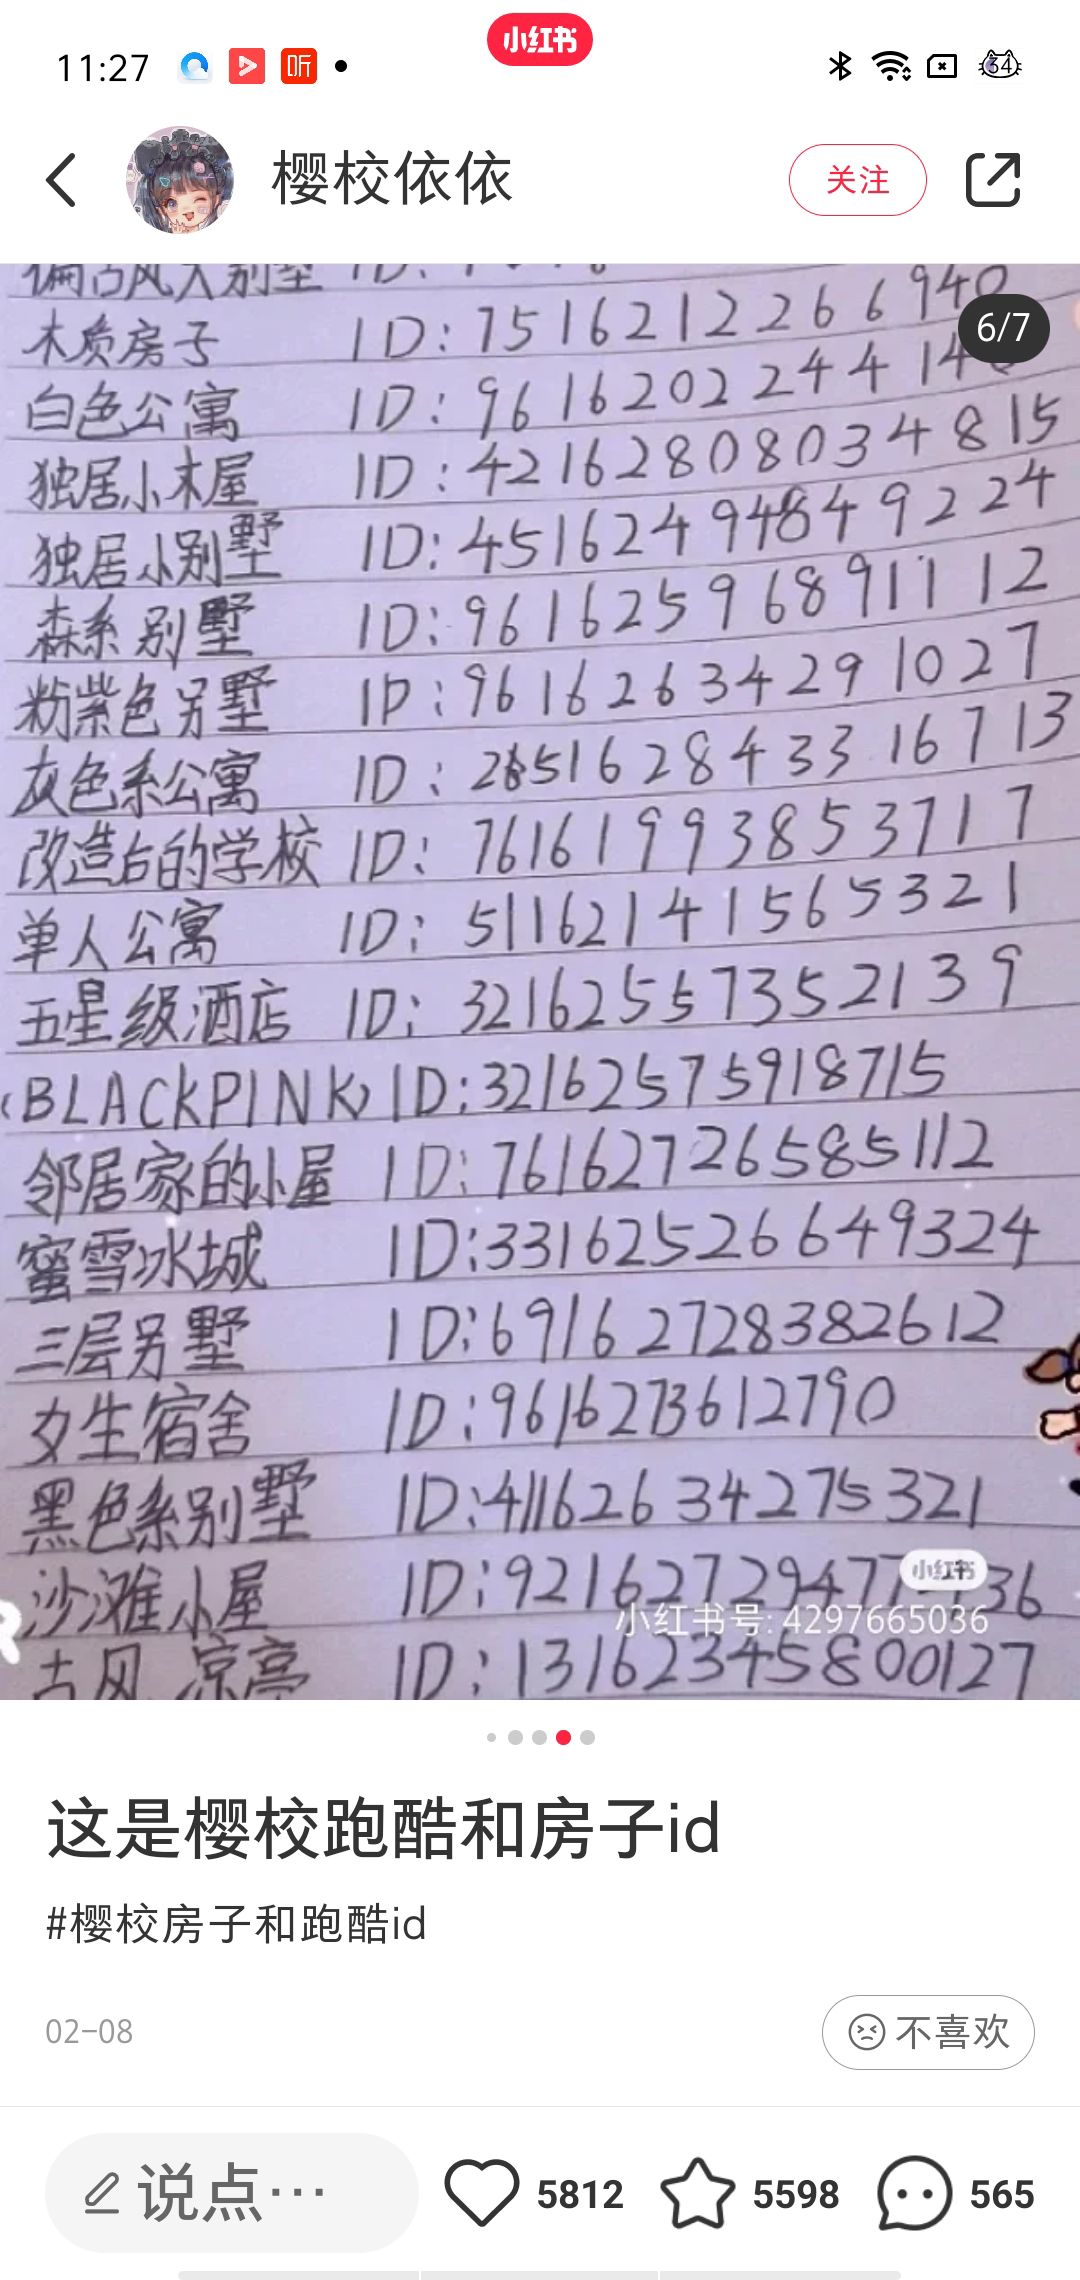 小红书
11:27
听
34
樱校依依
关注
6/7
偏古风大别墅
木质房子 ID:7516212266940
白色公寓 ID:96162022441
独居小木屋 ID:42162808034815
独居小别墅 ID:45162494849224
森系别墅 ID:96162596891112
粉紫色另墅 ID:96162634291027
灰色系公寓 ID:
改造白的学校 ID:76161993853717
单人公寓 ID:51162141565321
五星级酒店 ID:32162557352139
《BLACKPINK》ID:32162575918715
邻居家的小屋 ID:76162726585112
蜜雪冰城 ID:33162526649324
三层另墅 ID:69162728382612
女生宿舍 ID:9616273612790
黑色系别墅 ID:41162634275321
沙滩小屋 ID:92162729477
36
小红书
小红书号: 4297665036
古风 凉亭 ID:13162345800127
这是樱校跑酷和房子id
#樱校房子和跑酷id
02-08
不喜欢
说点…
5812
5598
565